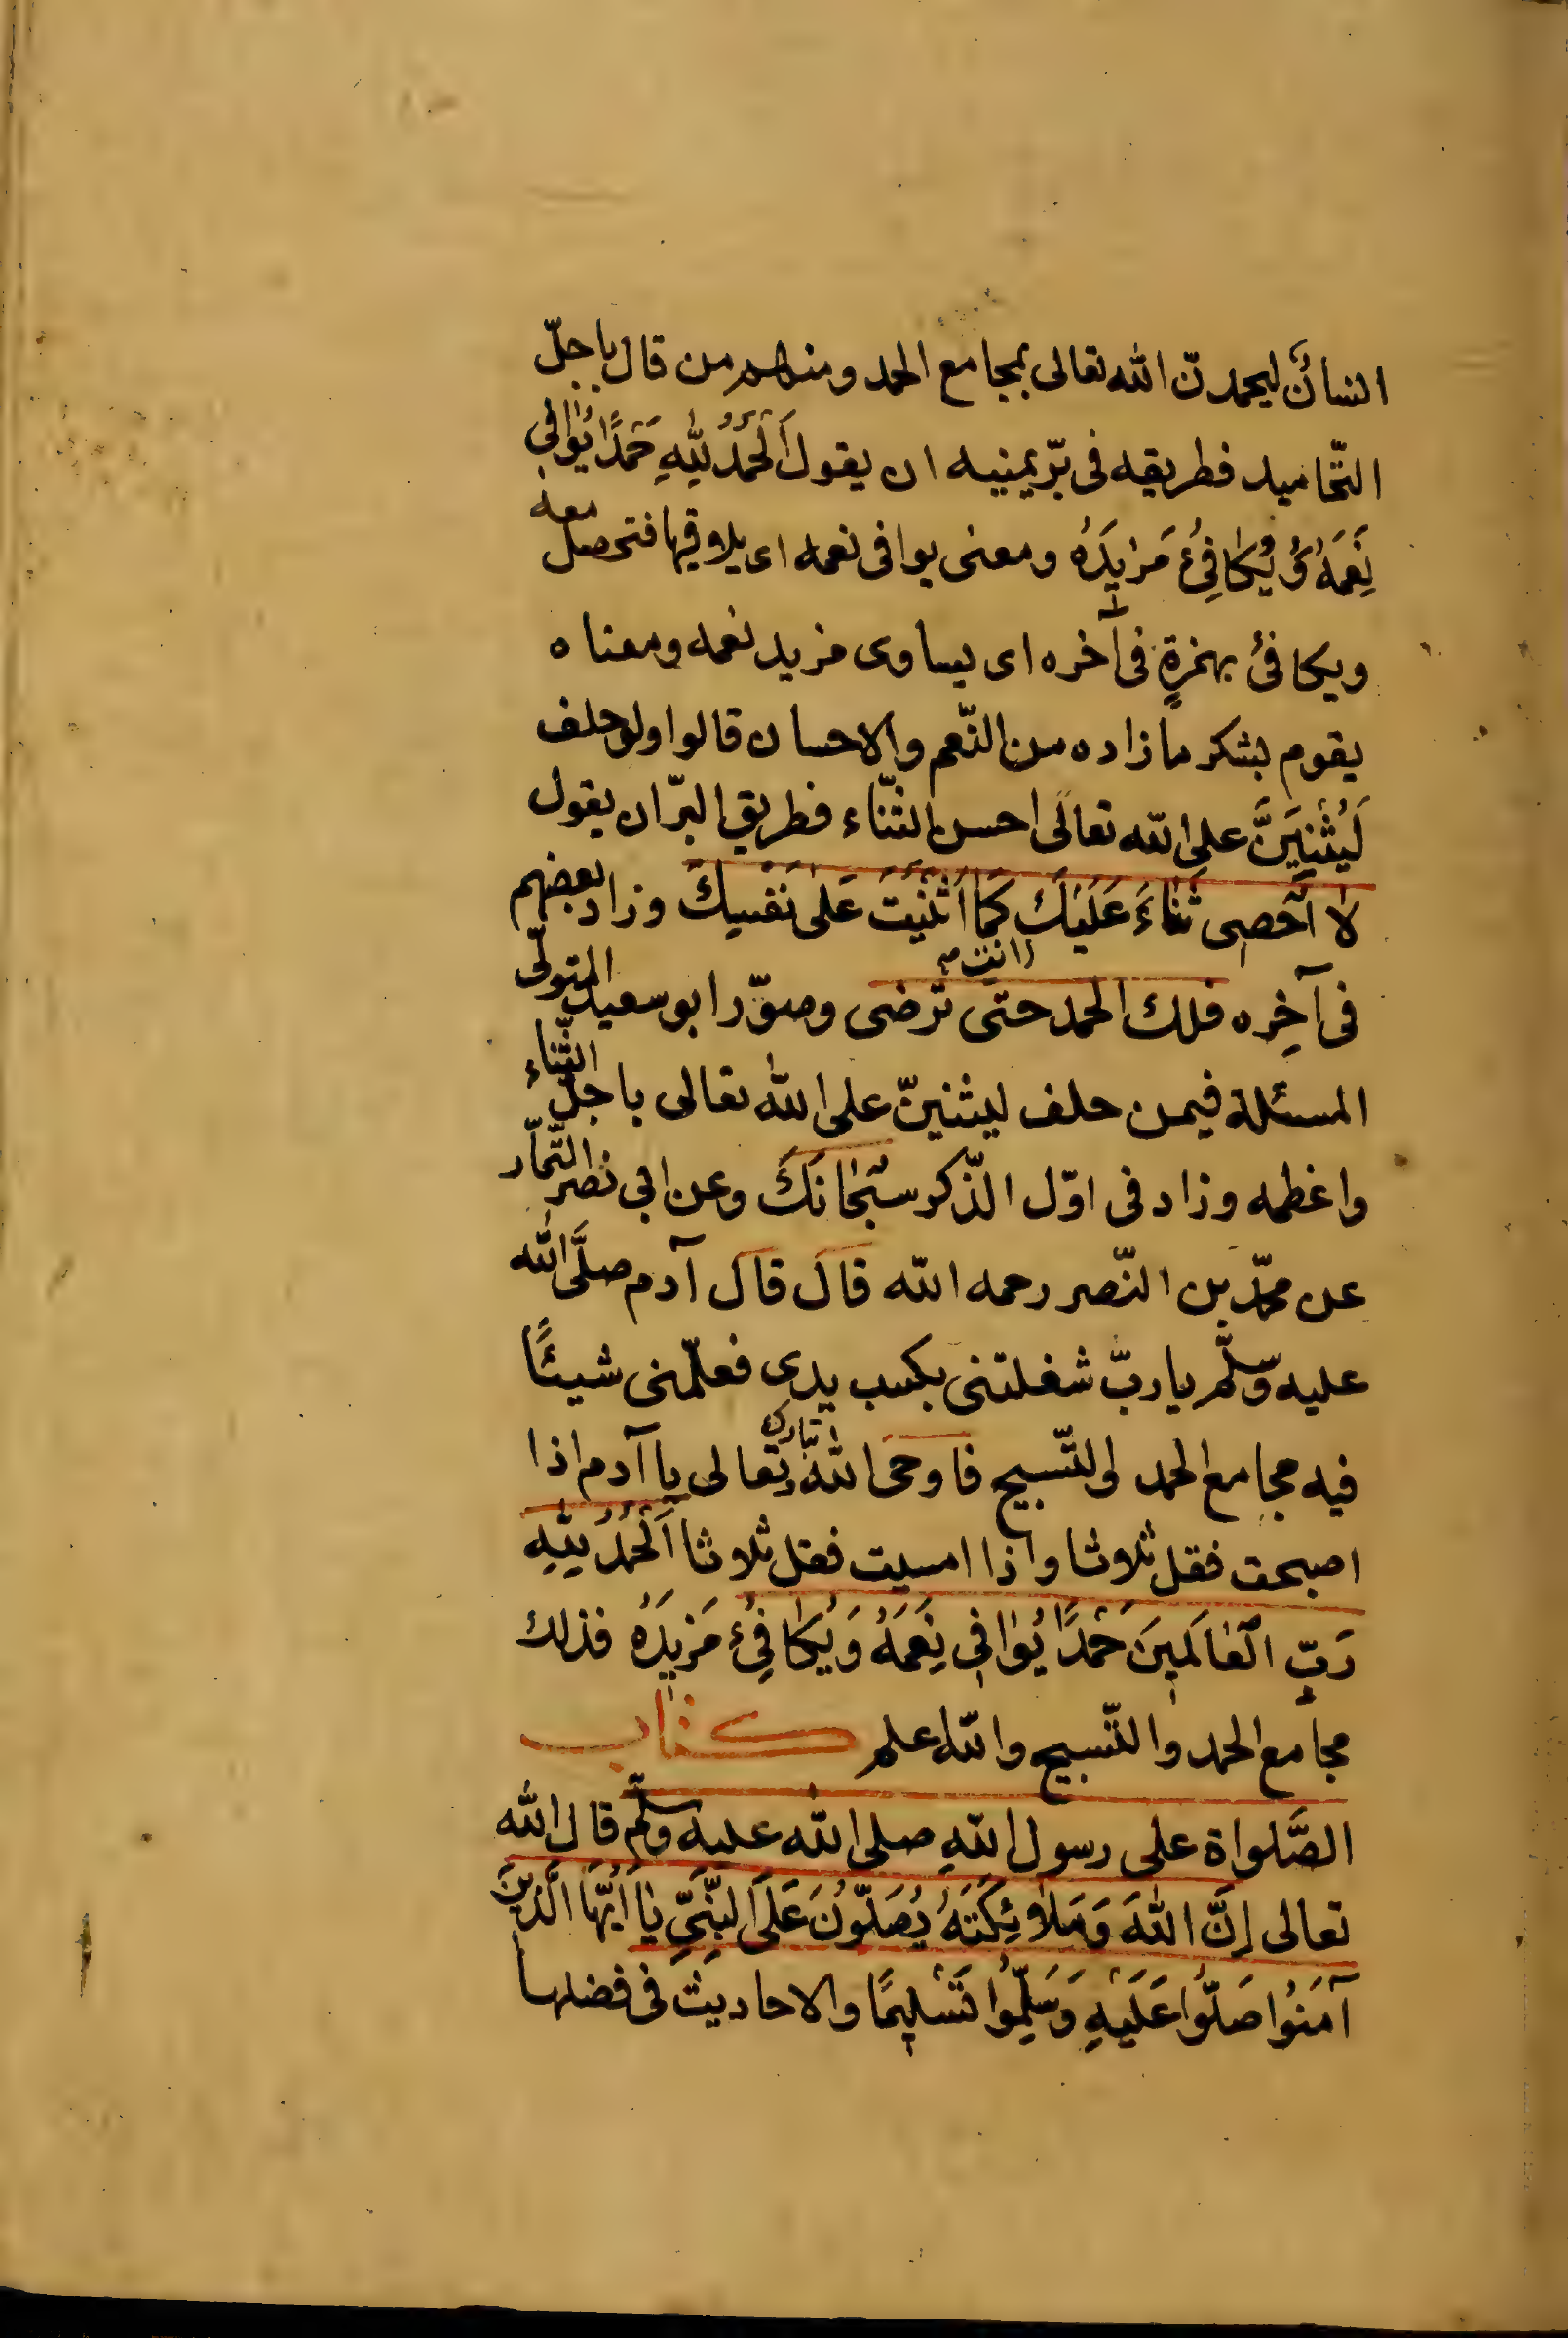 انسانٌ ليحمدنّ الله تعالى بمجامع الحمد ومنهم من قال باجلّ
التّحاميد فطريقه فى برّ يمينه ان يقول اَلْحَمْدُ لِلّٰهِ حَمْدًا يُوٰافِى
نِعَمَهُ وَيُكٰافِئُ مَزِيدَهُ ومعنى يوافى نعمه اى يلاقيها فتحصل معه
ويكافئ بهمزةٍ فى آخره اى يساوى مزيد نعمه ومعناه
يقوم بشكر ما زاده من النّعم والاحسان قالوا ولو حلف
لَيُثْنِيَنَّ على الله تعالى احسن الثّناء فطريق البرّ ان يقول
لا اُحْصِى ثَنٰاءً عَلَيْكَ كَمٰا اَثْنَيْتَ عَلٰى نَفْسِكَ وزاد بعضهم
انت
فى آخِره فلك الحمد حتى ترضى وصوّر ابو سعيد المتولّى
المسئلة فيمن حلف ليثنينّ على الله تعالى باجلّ الثّناء
واعظمه وزاد فى اوّل الذّكر سُبْحٰانَكَ وعن ابى نصر التّمّار
عن محمّد بن النّصر رحمه الله قالَ قالَ آدم صلَّى الله
عليه وسلّم يا ربّ شغلتنى بكسب يدى فعلّمنى شيئًا
فيه مجامع الحمد والتّسبيح فاوحَى الله تبارك وتعالى يا آدم اذا
اصبحت فقل ثلاثا واذا امسيت فقل ثلاثا اَلْحَمْدُ لِلّٰهِ
رَبِّ الْعٰالَمِينَ حَمْدًا يُوٰافِى نِعَمَهُ وَيُكٰافِئُ مَزِيدَهُ فذلك
مجامع الحمد والتّسبيح والله اعلم كتاب
الصَّلواة على رسول اللهِ صلى الله عليه وسلّم قال الله
تعالى اِنَّ اللهَ وَمَلٰئِكَتَهُ يُصَلُّونَ عَلَى النَّبِىِّ يٰا اَيُّهَا الَّذِينَ
آمَنُوا صَلُّوا عَلَيْهِ وَسَلِّمُوا تَسْلِيمًا والاحاديث فى فضلها